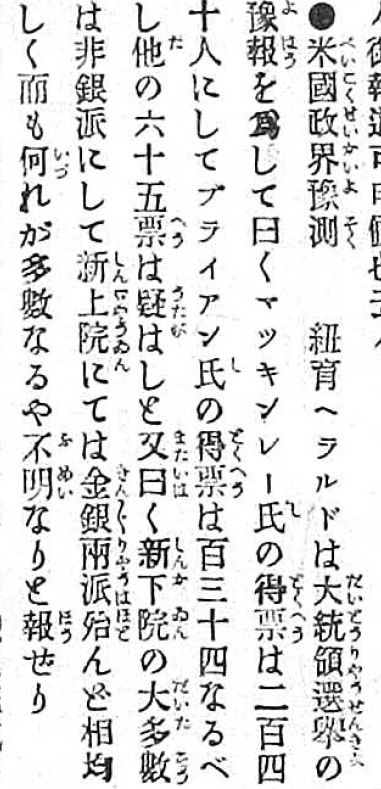 ●米國政界豫測　紐育ヘラルドは大統領選擧の
豫報を爲して曰くマッキンレー氏の得票は二百四
十人にしてブライアン氏の得票は百三十四なるべ
し他の六十五票は疑はしと又曰く新下院の大多數
は非銀派にして新上院にては金銀兩派殆んど相均
しく而も何れが多數なるや不明なりと報せり